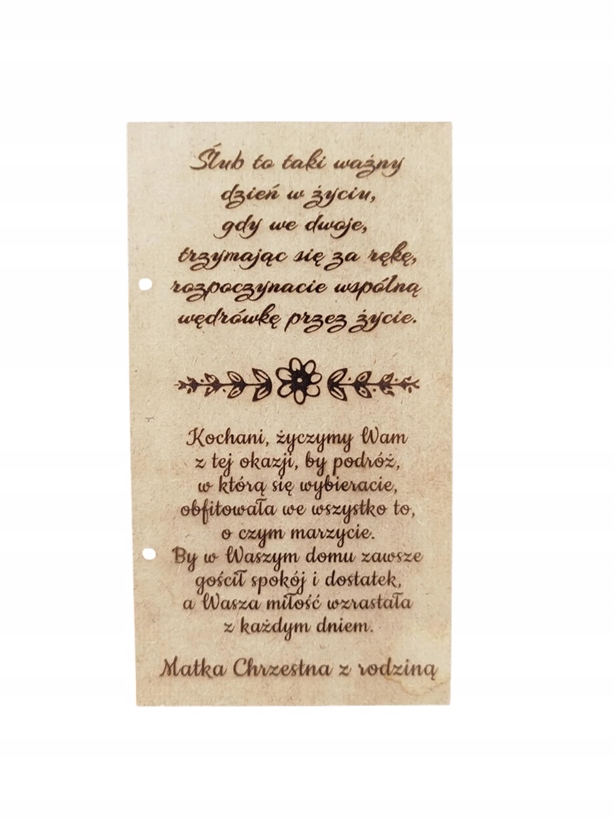 Ślub to taki ważny
dzień w życiu,
gdy we dwoje,
trzymając się za rękę,
rozpoczynacie wspólną
wędrówkę przez życie.
Kochani, życzymy Wam
z tej okazji, by podróż,
w którą się wybieracie,
obfitowała we wszystko to,
o czym marzycie.
By w Waszym domu zawsze
gościł spokój i dostatek,
a Wasza miłość wzrastała
z każdym dniem.
Matka Chrzestna z rodziną